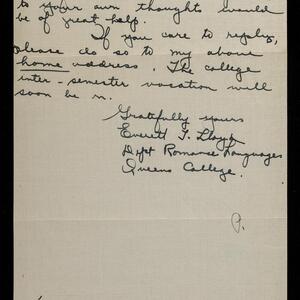 to your own thoughts would
be of great help.
If you care to reply,
please do so to my above
home address. The college
inter-semester vacation will
soon be on.
Gratefully yours
Everett
Dept Romance Languages
Queens College.